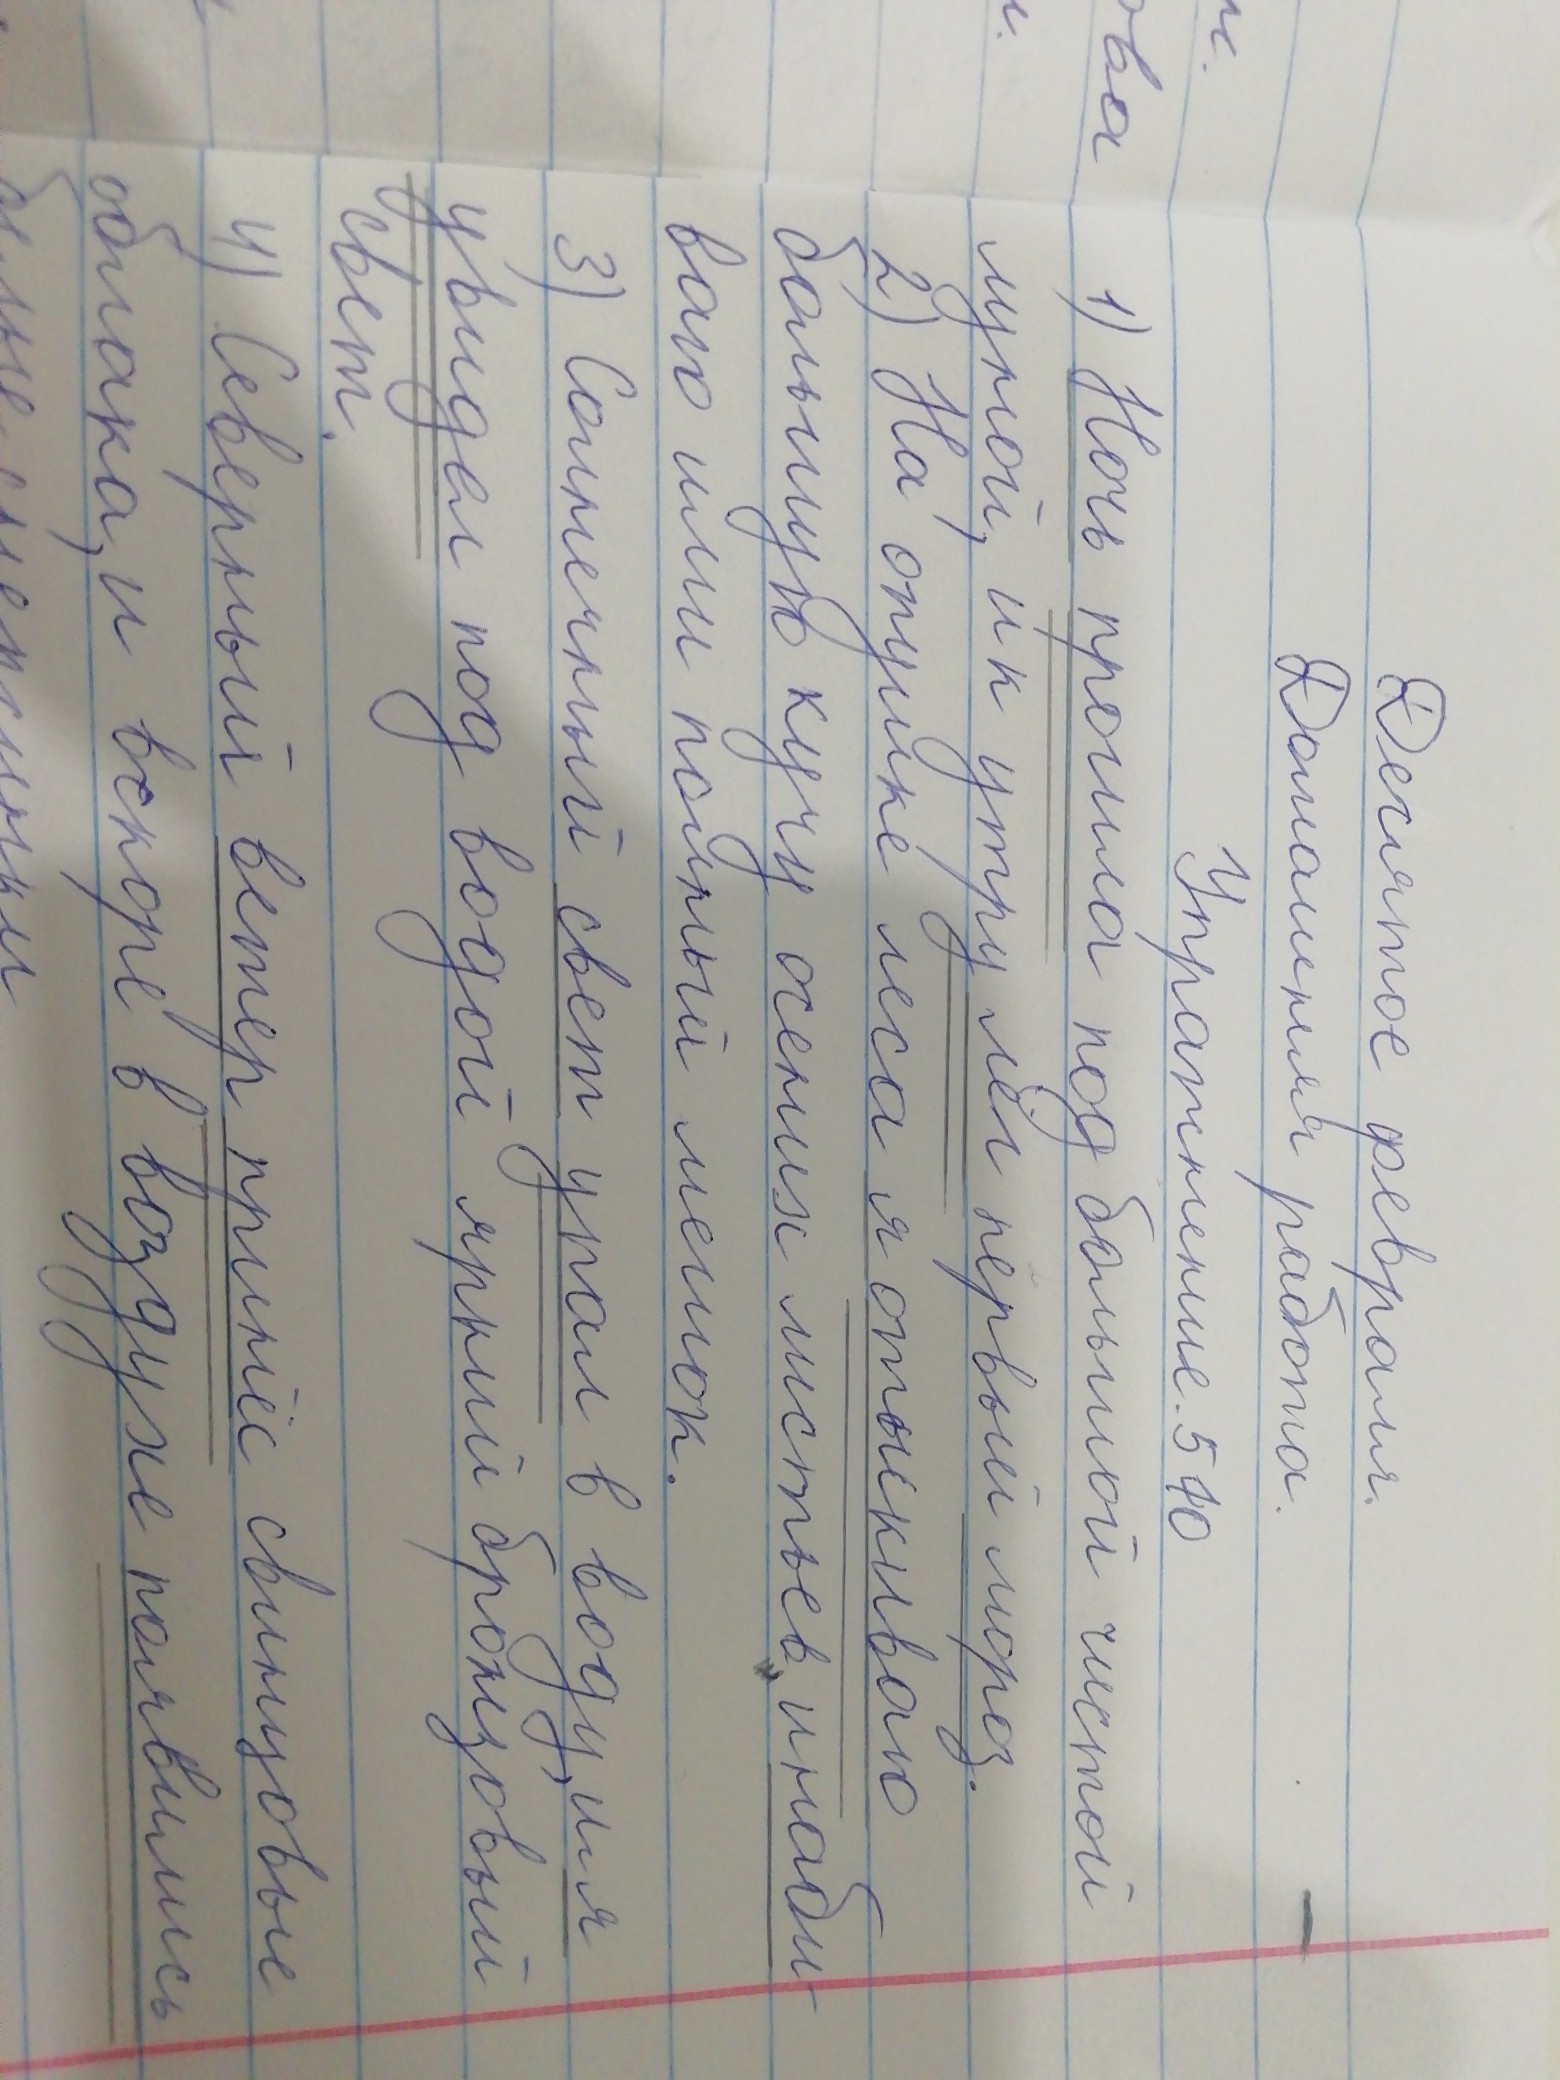 Десятое февраля.
Домашняя работа.
Упражнение. 540
1) Ночь прошла под большой чистой
луной, и к утру лёг первый мороз.
2) На опушке леса я отыскиваю
большую кучу осених листьев и наби-
ваю ими полный мешок.
3) Солнечный свет упал в воду, и я
увидел под водой яркий бронзовый
свет.
4) Северный ветер принёс свинцовые
облака, и вскоре в воздухе появились